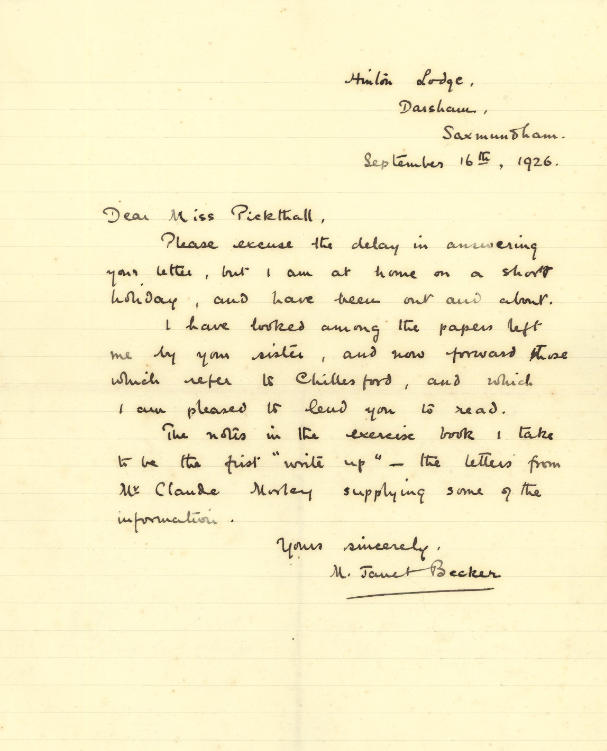 Hinton Lodge,
Darsham,
Saxmundham.
September 16th, 1926.
Dear Miss Pickthall,
Please excuse the delay in answering
your letter, but I am at home on a short
holiday, and have been out and about.
I have looked among the papers left
me by your sister, and now forward those
which refer to Chillesford, and which
I am pleased to lend you to read.
The notes in the exercise book I take
to be the first "write up" — the letters from
Mr Claude Morley supplying some of the
information.
Yours sincerely,
M. Janet Becker